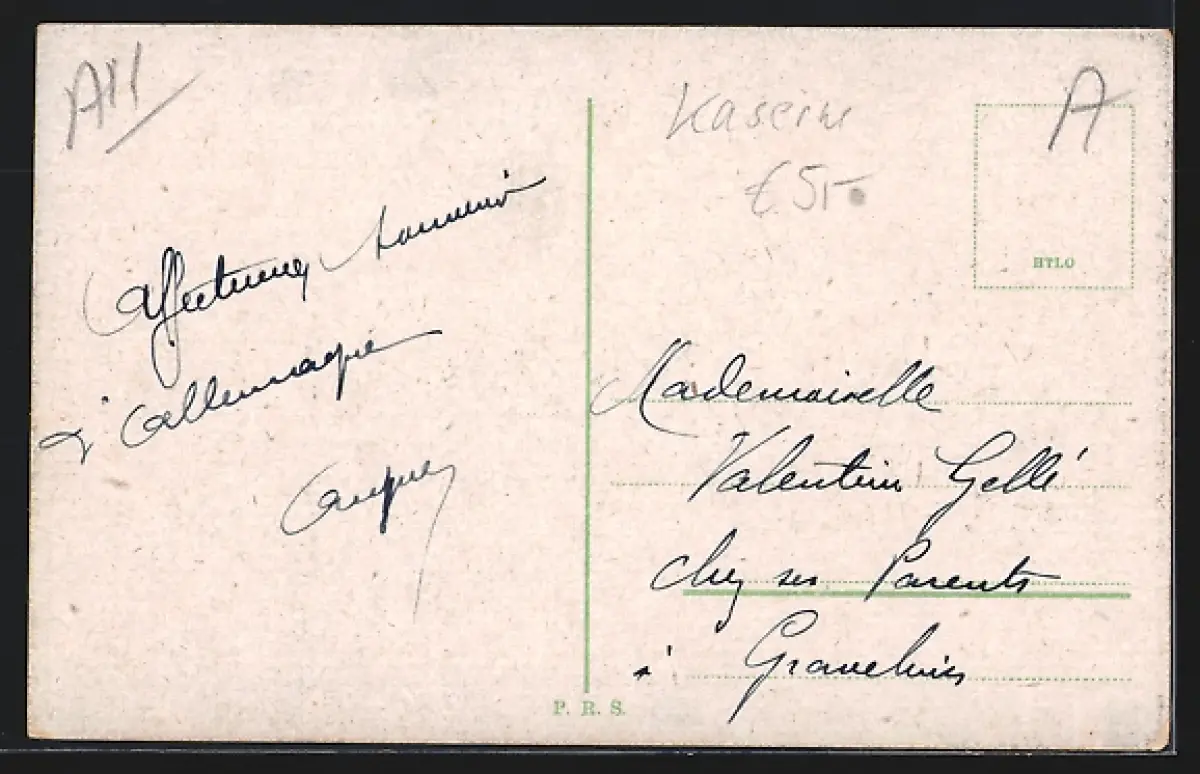 A11
Affectueux souvenir
d'Allemagne
Kaserne
€ 5,-
A
BTLO
Mademoiselle
Valentine Gellé
chez ses Parents
à Gravelines
P. R. S.